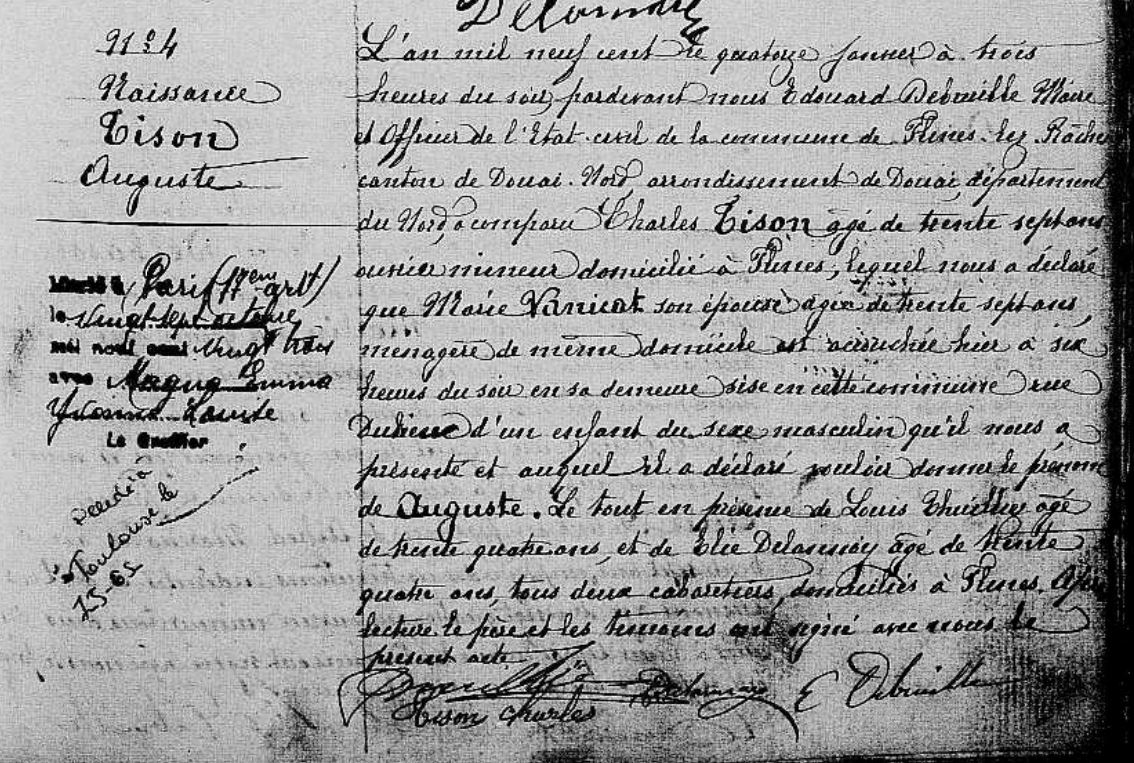 Delannoy
N° 4
Naissance
Tison
Auguste
Marié à Paris (17em arrt)
le vingt sept octobre
mil neuf cent vingt trois
avec Magna Emma
Yvonne Laurite
Le Greffier
Décédé à
Toulouse le
L'an mil neuf cent le quatorze janvier à trois
heures du soir, pardevant nous Edouard Debruille Maire
et Officier de l'Etat-civil de la commune de Flines-lez-Raches
canton de Douai-Nord, arrondissement de Douai, département
du Nord, a comparu Charles Tison agé de trente sept ans
ouvrier mineur domicilié à Flines, lequel nous a déclaré
que Marie Vanicat son épouse agée de trente sept ans,
ménagère de même domicile est accouchée hier à six
heures du soir en sa demeure sise en cette commune rue
d'un enfant du sexe masculin qu'il nous a
présenté et auquel il a déclaré vouloir donner le prénom
de Auguste. Le tout en présence de Louis Thuillier agé
de trente quatre ans, et de Elie Delannoy agé de trente
quatre ans, tous deux cabaretiers, domiciliés à Flines. Après
lecture le père et les témoins ont signé avec nous le
présent acte.
Delannoy E Debruille
Tison Charles